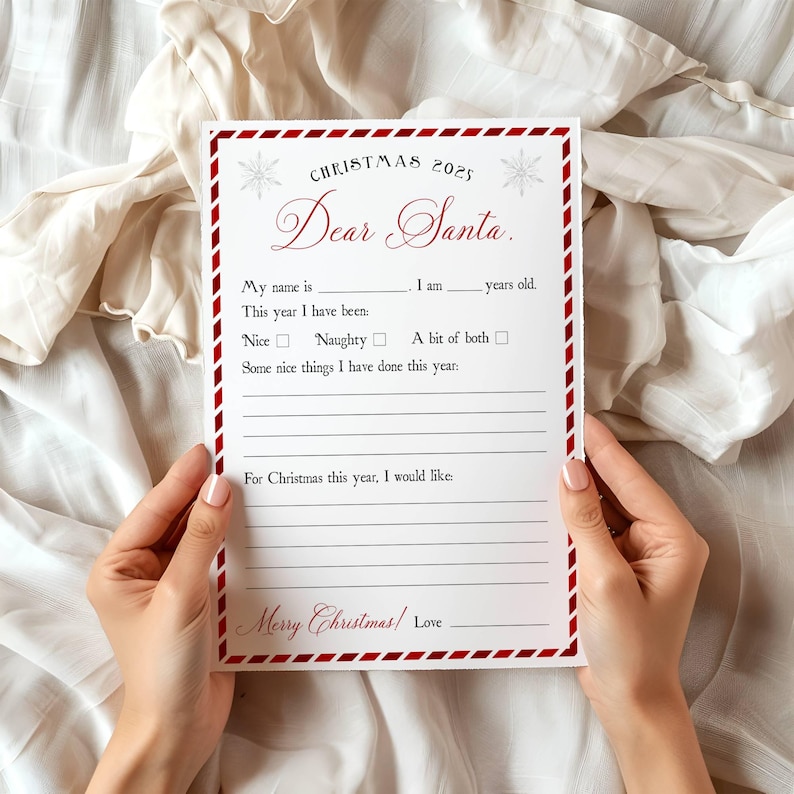 CHRISTMAS 2025
Dear Santa.
My name is ____________. I am _____ years old.
This year I have been:
Nice ☐ Naughty ☐ A bit of both ☐
Some nice things I have done this year:
For Christmas this year, I would like:
Merry Christmas! Love ______________